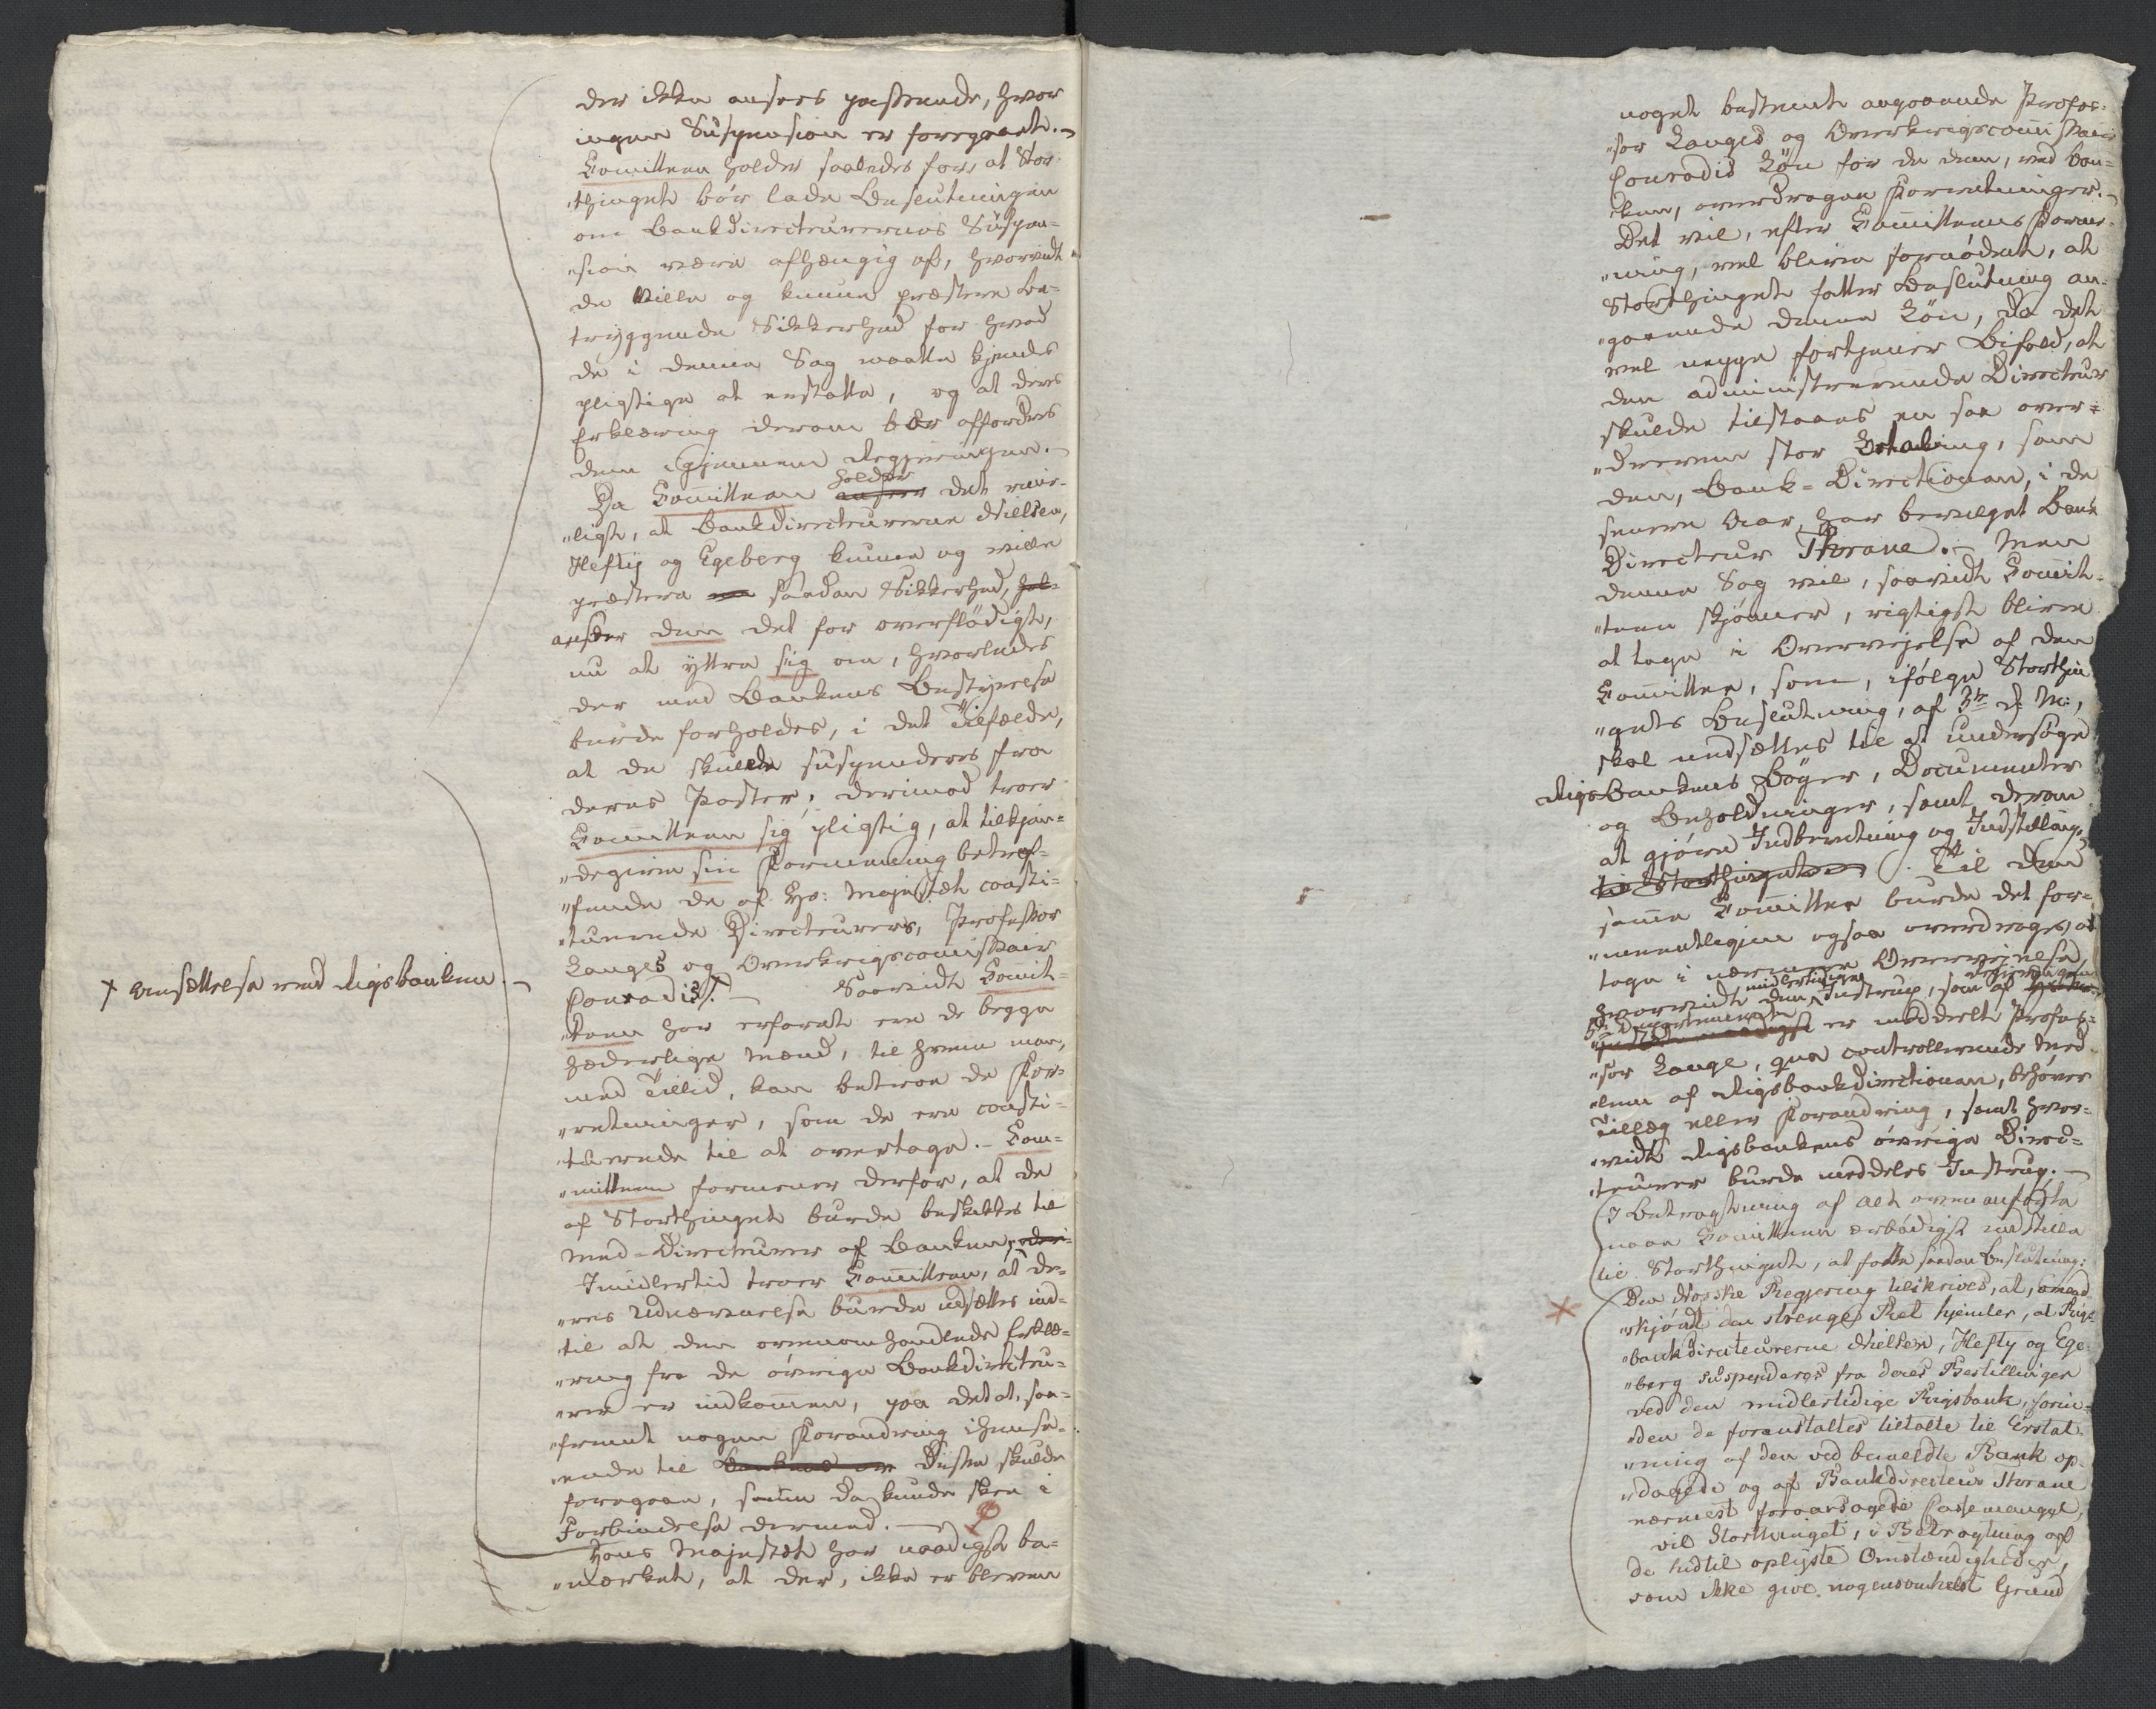 der ikke ansees passende, hvor
ingen Suspension er foregaaet. -
Comitteen holder saaledes for, at Stor-
„thinget bör lade Beslutningen
om Bankdirecteurernes Suspen=
„sion være afhængig af, hvorvidt
de ville og kunne præstere be=
tryggende Sikkerhed for hvad
de i denne Sag maatte kjendes
pligtige at erstatte, og at deres
Erklæring derom bör affordres
dem igjennem Regjeringen. -
Da Comitteen ansees holder det rime-
„ligt, at Bankdirecteurerne Nielsen,
Heftÿ og Egeberg kunne og ville
præstere en saadan Sikkerhed, hol-
anseer den det for overflödigt,
nu at ÿttre sig om, hvorledes
der med Bankens Bestÿrelse
burde forholdes, i det Tilfælde,
at de skulde suspenderes fra
deres Poster; derimod troer
Comitteen sig pligtig, at tilkjen=
„degive sin Formening betref=
„fende de af Hs: Majestæt consti=
„tuerede Directeurers, Professor
Lauges og Overkrigscommissair
Conradis X. - Saavidt Comit=
„teen har erfaret ere de begge
hæderlige Mænd, til hvem man,
med Tillid, kan betroe de For=
„retninger, som de ere consti=
„tuerede til at overtage. - Com=
„mitteen formener derfor, at de
af Storthinget burde beskikkes til
Med-Directeurer af Banken,
Imidlertid troer Comitteen, at de=
„res Udnævnelse burde udsættes ind=
„til at den ovenomhandlede Erklæ=
„ring fra de övrige Bankdirecteu=
„rer er indkommen, paa det at, saa=
„fremt nogen Forandring i Henseende
„ende til Bankens Disse skulde
foregaae, samme da kunde skee i
Forbindelse dermed. -
Hans Majestæt har naadigst be=
„mærket, at der, ikke er bleven
X Ansættelse ved Rigsbanken -
noget bestemt angaaende Profes=
„sor Lauges og Overkrigscommissair
Conradis Lön for de dem, ved Ban=
„ken, overdragne Forretninger. -
Det vil, efter Comitteens Forme-
„ning, vel blive fornödent, at
Storthinget fatter Beslutning an=
„gaaende denne Lön, da det
vel neppe fortjener Bifald, at
den administrerende Directeur
skulde tilstaaes en saa over=
„dreven stor Betaling, som
den, Bank-Directionen, i de
senere Aar, har bevilget Bank
Directeur Thrane. - Men
denne Sag vil, saavidt Comit-
„teen skjönner, rigtigst blive
at tage i Overvejelse af den
Comittee, som, ifölge Storthin
„gets Beslutning, af 3de d: M:,
skal nedsættes til at undersöge
Rigsbankens Böger, Documenter
og Beholdninger, samt derom
at gjöre Indberetning og Indstilling,
til Storthinget. Til den
samme Comittee burde det for=
„mentligen ogsaa overdrages, at
tage i nærmere Overvejelse,
hvorvidt den midlertidige Instrux, som af Regjeringens
5te Departement er meddeelt Profes=
„sor Lauge, qua controllerende Med
„lem af Rigsbankdirectionen, behöver
Tillæg eller Forandring, samt hvor=
„vidt Rigsbankens övrige Direc=
„teurer burde meddeles Instrux. -
I Betragtning af alt ovenanförte
maa Comitteen ærbödigst indstille
til Storthinget, at fatte saadan Beslutning:
Den Norske Regjering tilskrives, at, omend
„skjöndt den strenge Ret hjemler, at Rigs
„bankdirecteurerne Nielsen, Hefty og Ege-
„berg suspenderes fra deres Bestillinger
ved den midlertidige Rigsbank, forin=
„den de foranstaltes tiltalte til Erstat-
„ning af den ved bemeldte Bank op-
„dagede og af Bankdirecteur Thrane
nærmest foraarsagede Cassemangel,
vil Storthinget, i Betragtning af
de hidtil oplyste Omstændigheder,
som ikke give nogensomhelst Grund